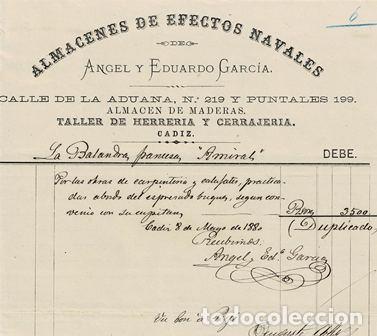 6
ALMACENES DE EFECTOS NAVALES
DE
ANGEL Y EDUARDO GARCÍA.
CALLE DE LA ADUANA, N.º 219 Y PUNTALES 199.
ALMACEN DE MADERAS.
TALLER DE HERRERIA Y CERRAJERIA.
CADIZ.
La Balandra francesa, "Amiral" DEBE.
Por las obras de carpintería y calafates, practica-
das abordo del espresado buque, segun con-
venio con su capitan, 3500
Cadiz 8 de Mayo de 1880 (Duplicado)
Recibimos.
Angel, Ed.º Garcia
todocoleccion